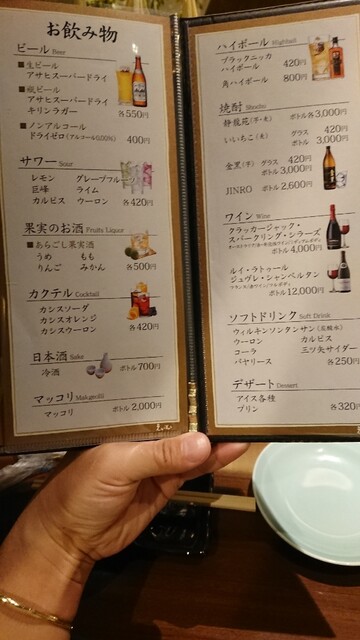 お飲み物
ビール Beer
■生ビール
アサヒスーパードライ
■瓶ビール
アサヒスーパードライ
キリンラガー
各550円
■ノンアルコール
ドライゼロ(アルコール0.00%) 400円
サワー Sour
レモン グレープフルーツ
巨峰 ライム
カルピス ウーロン 各420円
果実のお酒 Fruits Liquor
■あらごし果実酒
うめ もも
りんご みかん 各500円
カクテル Cocktail
カシスソーダ
カシスオレンジ
カシスウーロン 各420円
日本酒 Sake
冷酒 ボトル700円
マッコリ Makgeolli
マッコリ ボトル2,000円
ハイボール Highball
ブラックニッカ
ハイボール 420円
角ハイボール 800円
焼酎 Shochu
(芋・麦) ボトル各3,000円
いいちこ(麦) グラス 420円
ボトル 3,000円
金黒(芋) グラス 420円
ボトル3,000円
JINRO ボトル2,600円
ワイン Wine
クラッカージャック・
スパークリング・シラーズ
ボトル4,000円
ルイ・ラトゥール
ジュヴレ・シャンベルタン
ボトル12,000円
ソフトドリンク Soft Drink
ウィルキンソンタンサン(炭酸水)
ウーロン カルピス
コーラ 三ツ矢サイダー
バヤリース 各250円
デザート Dessert
アイス各種
プリン 各320円